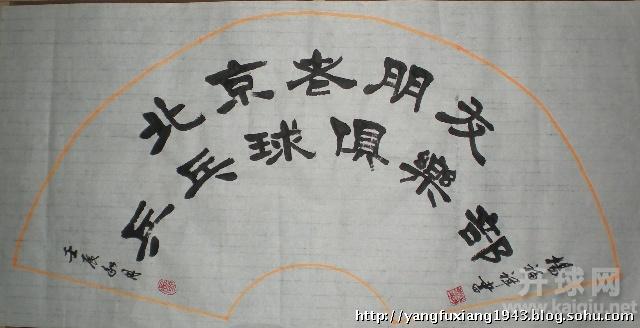 北京老朋友
乒乓球俱樂部
壬辰
开球网
www.kaiqiu.net
http://yangfuxiang1943.blog.sohu.com